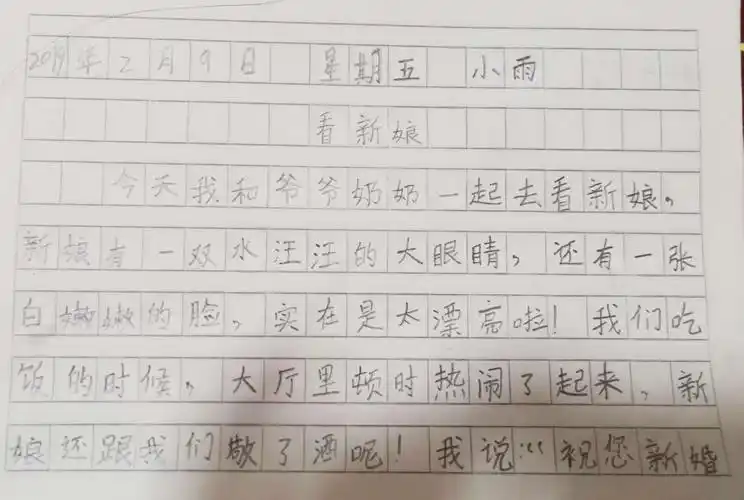 2019年2月9日 星期五 小雨
看新娘
今天我和爷爷奶奶一起去看新娘，
新娘有一双水汪汪的大眼睛，还有一张
白嫩嫩的脸，实在是太漂亮啦！我们吃
饭的时候，大厅里顿时热闹了起来，新
娘还跟我们敬了酒呢！我说：“祝您新婚